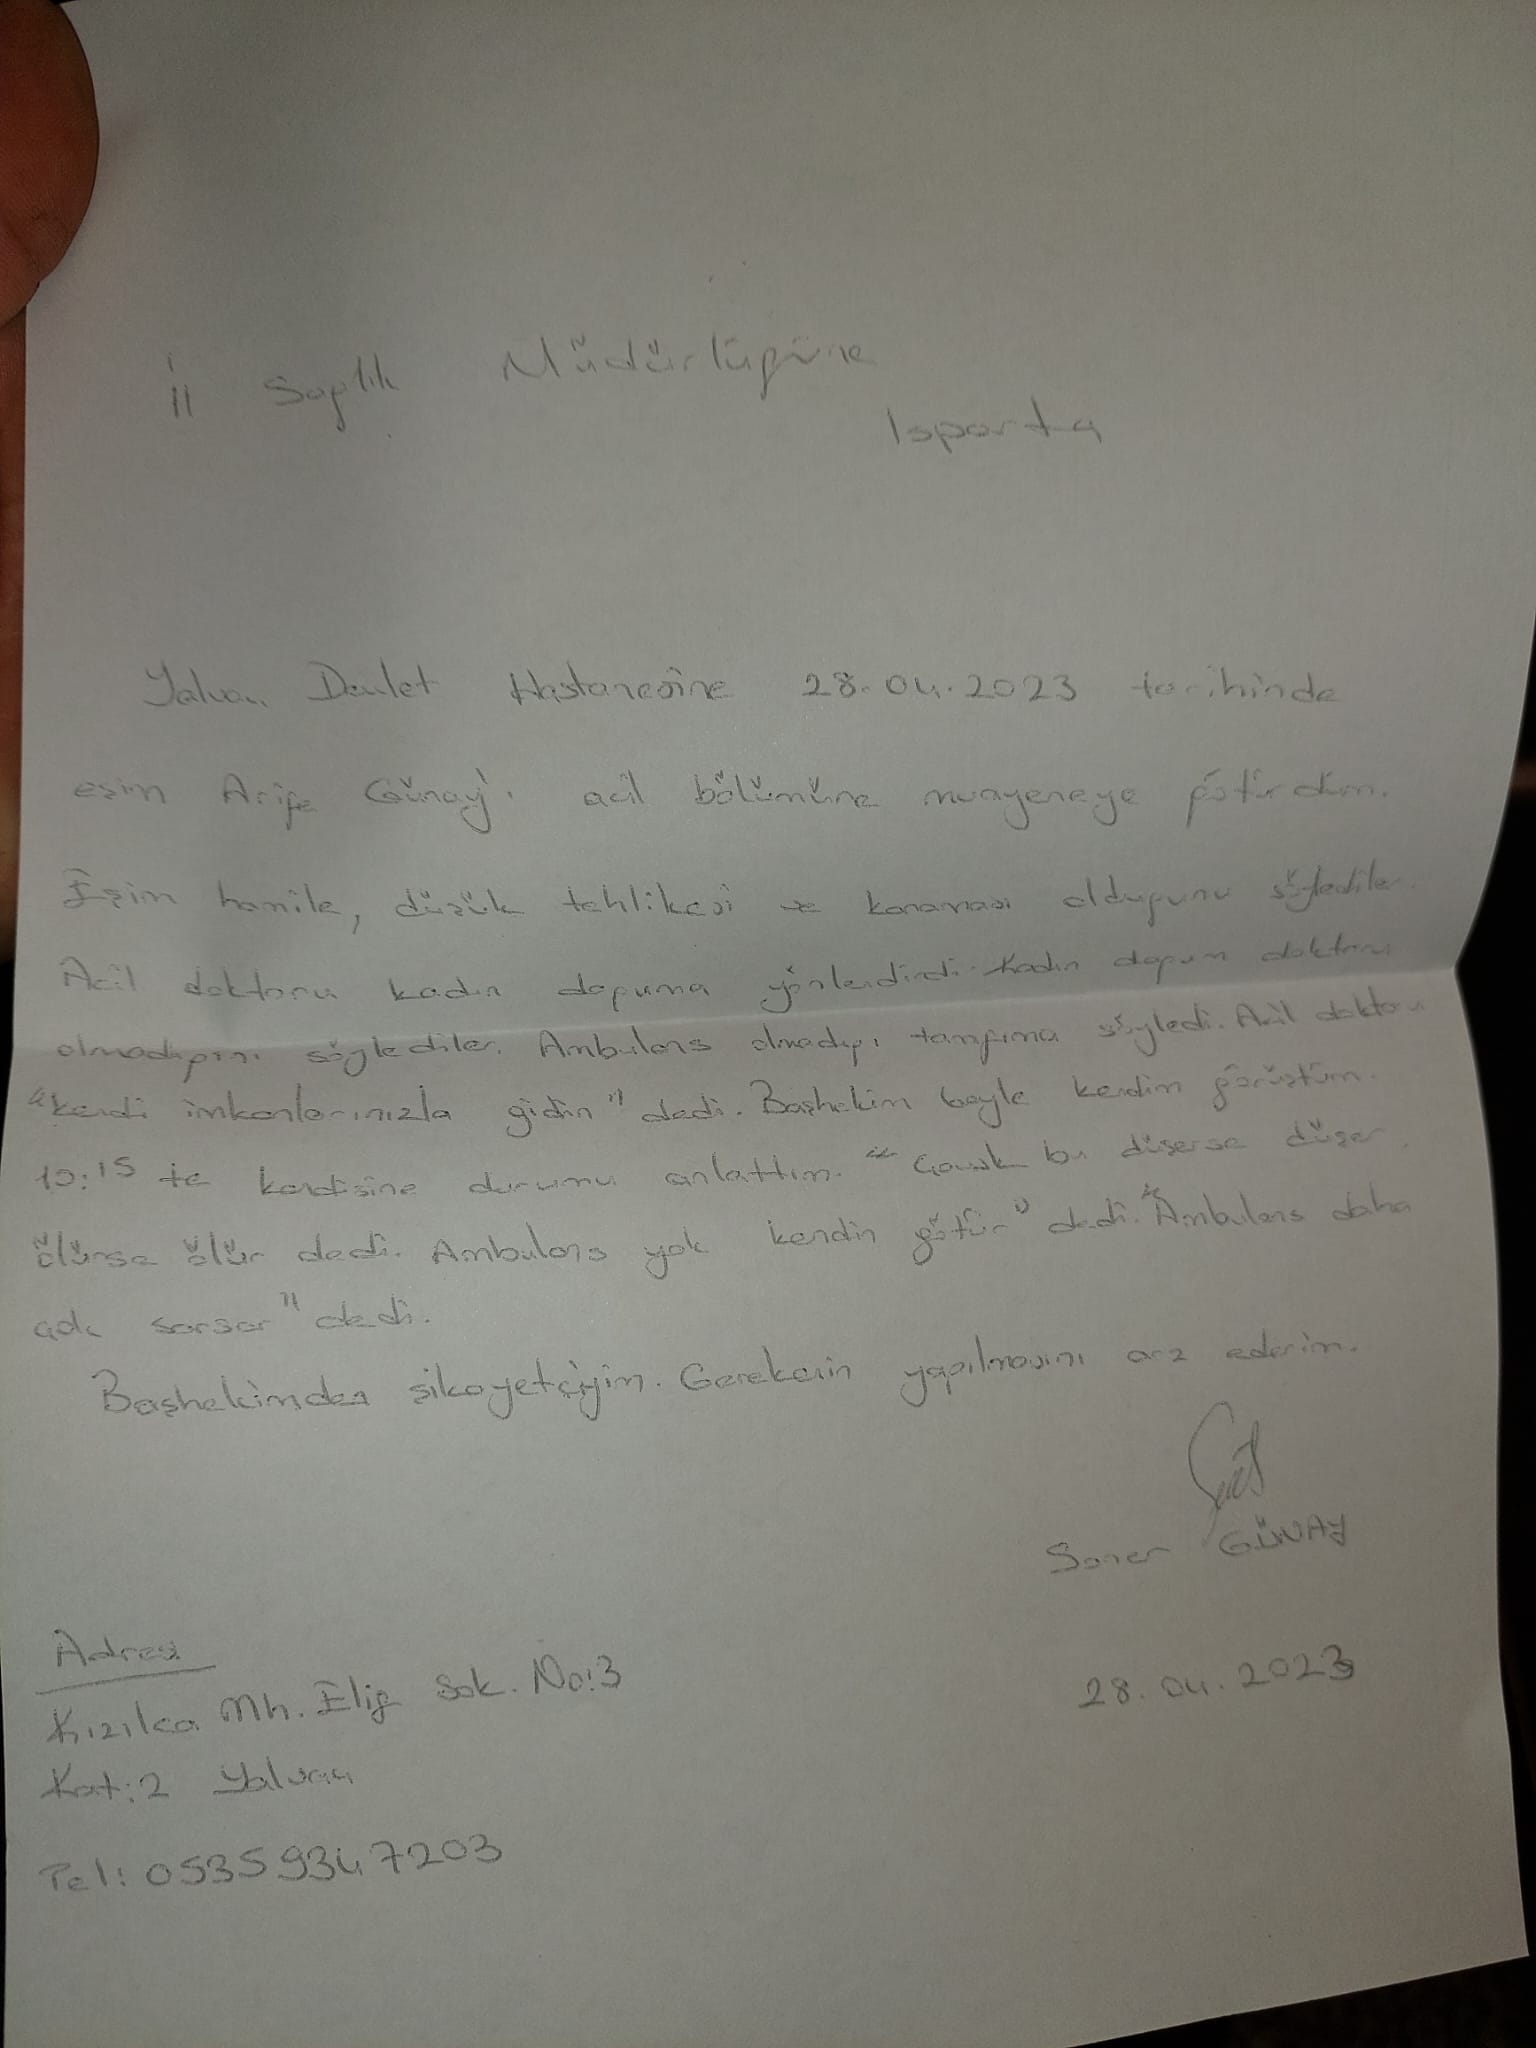 İl Sağlık Müdürlüğüne
Isparta
Yalvaç Devlet Hastanesine 28.04.2023 tarihinde
eşim Arife Günay'ı acil bölümüne muayeneye götürdüm.
Eşim hamile, düşük tehlikesi ve kanaması olduğunu söylediler.
Acil doktoru kadın doğuma yönlendirdi. Kadın doğum doktoru
olmadığını söylediler. Ambulans olmadığı tarafıma söyledi. Acil doktoru
"kendi imkanlarınızla gidin" dedi. Başhekim beyle kendim görüştüm.
19:15 te kendisine durumu anlattım. "Çocuk bu düşerse düşer
ölürse ölür dedi. Ambulans yok kendin götür" dedi. "Ambulans daha
çok sarsar" dedi.
Başhekimden şikayetçiyim. Gerekenin yapılmasını arz ederim.
Soner GÜNAY
28.04.2023
Adres
Kızılca Mh. Elif Sok. No:3
Kat:2 Yalvaç
Tel: 05359347203